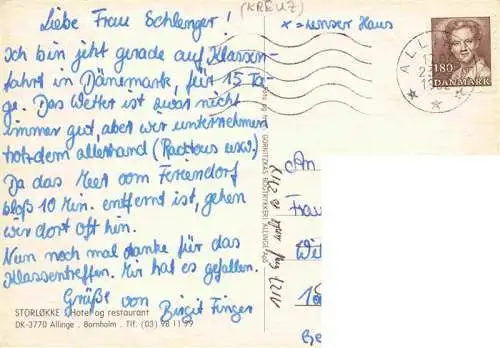 Liebe Frau Schlenger!
(KREUZ)
x = unser Haus
Ich bin jetzt gerade auf Klassen-
fahrt in Dänemark, für 15 Ta-
ge. Das Wetter ist zwar nicht
immer gut, aber wir unternehmen
trotzdem allerhand (Radtous usw.)
Da das Meer vom Feriendorf
bloß 10 Min. entfernt ist, gehen
wir dort oft hin.
Nun noch mal danke für das
Klassentreffen. Mir hat es gefallen.
Grüße von Birgit Finger
STORLØKKE Hotel og restaurant
DK-3770 Allinge . Bornholm . Tlf. (03) 98 11 99
GORNITZKAS BOGTRYKKERI ALLINGE
ALL
180
DANMARK
An
Frau